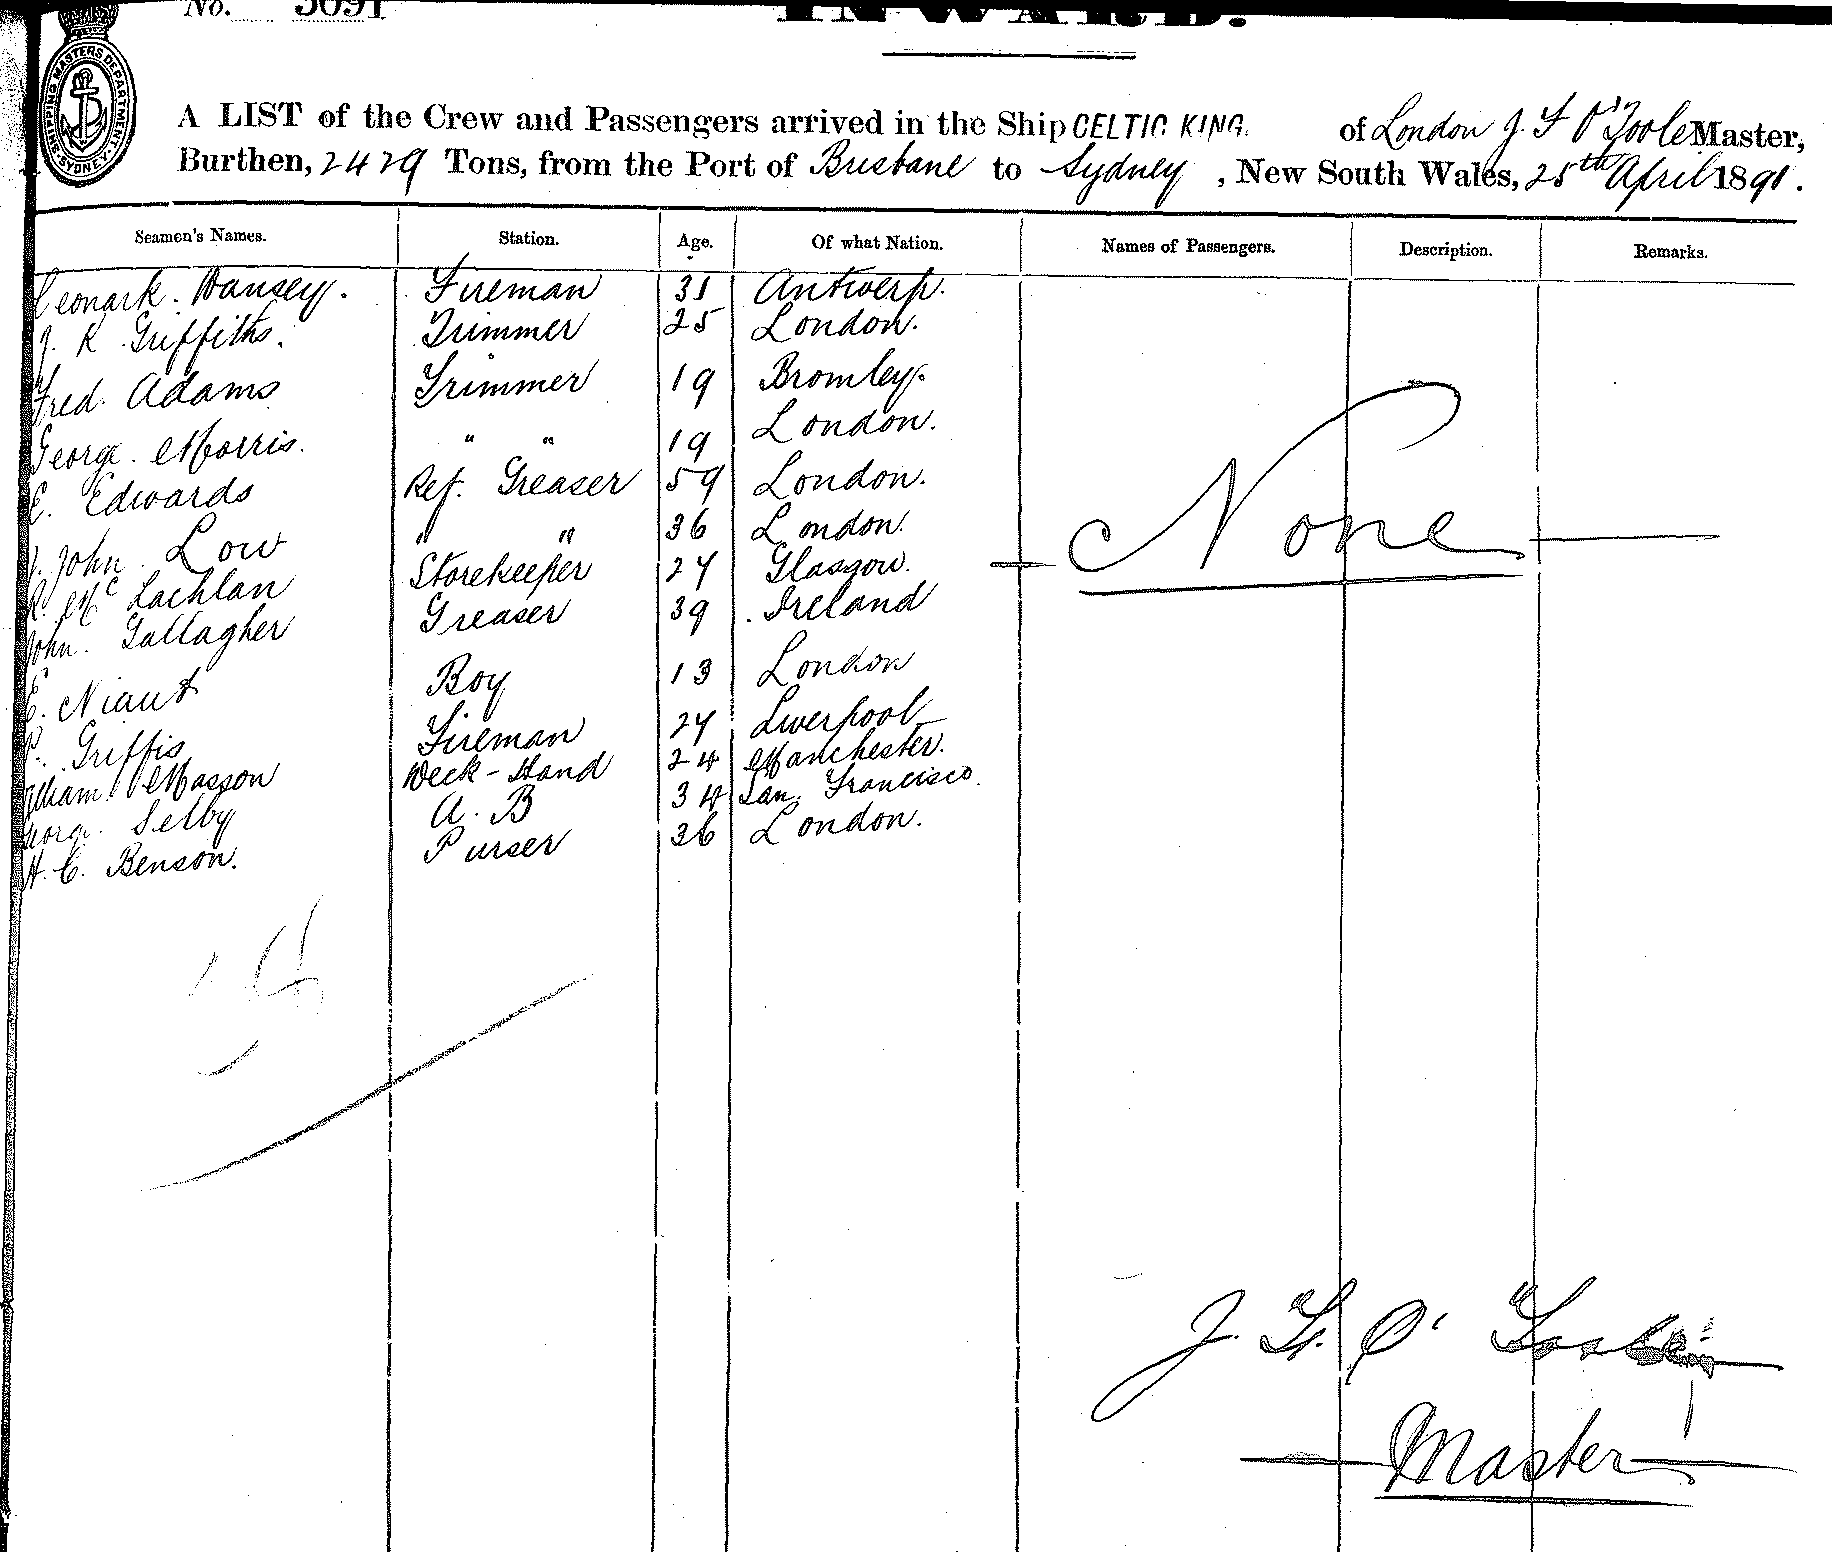 No. 3091
INWARD.
SHIPPING MASTERS DEPARTMENT. SYDNEY.
A LIST of the Crew and Passengers arrived in the Ship CELTIC KING. of London J. F O'Toole Master,
Burthen, 2429 Tons, from the Port of Brisbane to Sydney, New South Wales, 25th April 1891.
Seamen's Names. Station. Age. Of what Nation. Names of Passengers. Description. Remarks.
Fireman 31 Antwerp.
J. R Griffiths. Trimmer 25 London.
Fred. Adams Trimmer 19 Bromley.
George. Morris. " " 19 London.
E. Edwards Ref. Greaser 59 London.
John. Low " " 36 London.
R. Mc Lachlan Storekeeper 27 Glasgow.
John. Gallagher Greaser 39 Ireland
Boy 13 London
Griffis Fireman 27 Liverpool
William. Masson Deck-Hand 24 Manchester.
Georg. Selby A. B 34 San Francisco.
H. C. Benson. Purser 36 London.
None
J. F. O'Toole
Master